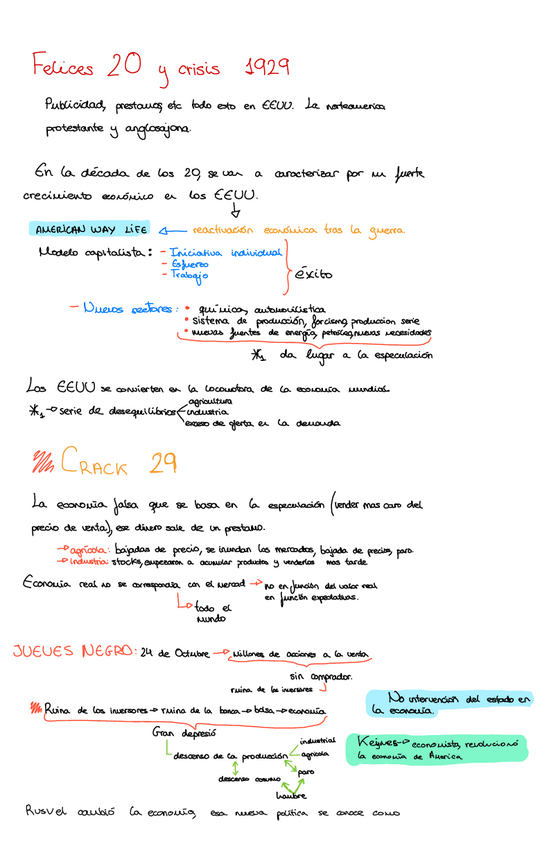 Felices 20 y crisis 1929
Publicidad, prestamos, etc todo esto en EEUU. La norteamerica
protestante y anglosajona.
En la década de los 20, se van a caracterizar por un fuerte
crecimiento económico en los EEUU.
AMERICAN WAY LIFE ← reactivación económica tras la guerra
Modelo capitalista: - Iniciativa individual
- Esfuerzo
- Trabajo
éxito
- Nuevos sectores: • química, automovilistica
• sistema de producción, forcismo, produccion serie
• nuevas fuentes de energía, petroleo, nuevas necesidades
*1 da lugar a la especulación
Los EEUU se convierten en la locomotora de la economía mundial.
*1 → serie de desequilibrios
agricultura
industria
exceso de oferta en la demanda
CRACK 29
La economía falsa que se basa en la especulación (vender mas caro del
precio de venta), ese dinero sale de un prestamo.
→ agrícola: bajadas de precio, se inundan los mercados, bajada de precios, paro
→ industria: stocks, empezaron a acumular productos y venderlos mas tarde
Economía real no se correspondia con el mercad → no en función del valor real
en función expectativas.
todo el
mundo
JUEVES NEGRO: 24 de Octubre → Millones de acciones a la venta
sin comprador.
ruina de los inversores
Ruina de los inversores → ruina de la banca → bolsa → economía
No intervención del estado en
la economía.
Gran depresió
descenso de la producción
industrial
agricola
paro
descenso consumo
hambre
Keynes → economista, revolucionó
la economía de America
Rusvel cambió la economía, esa nueva política se conoce como